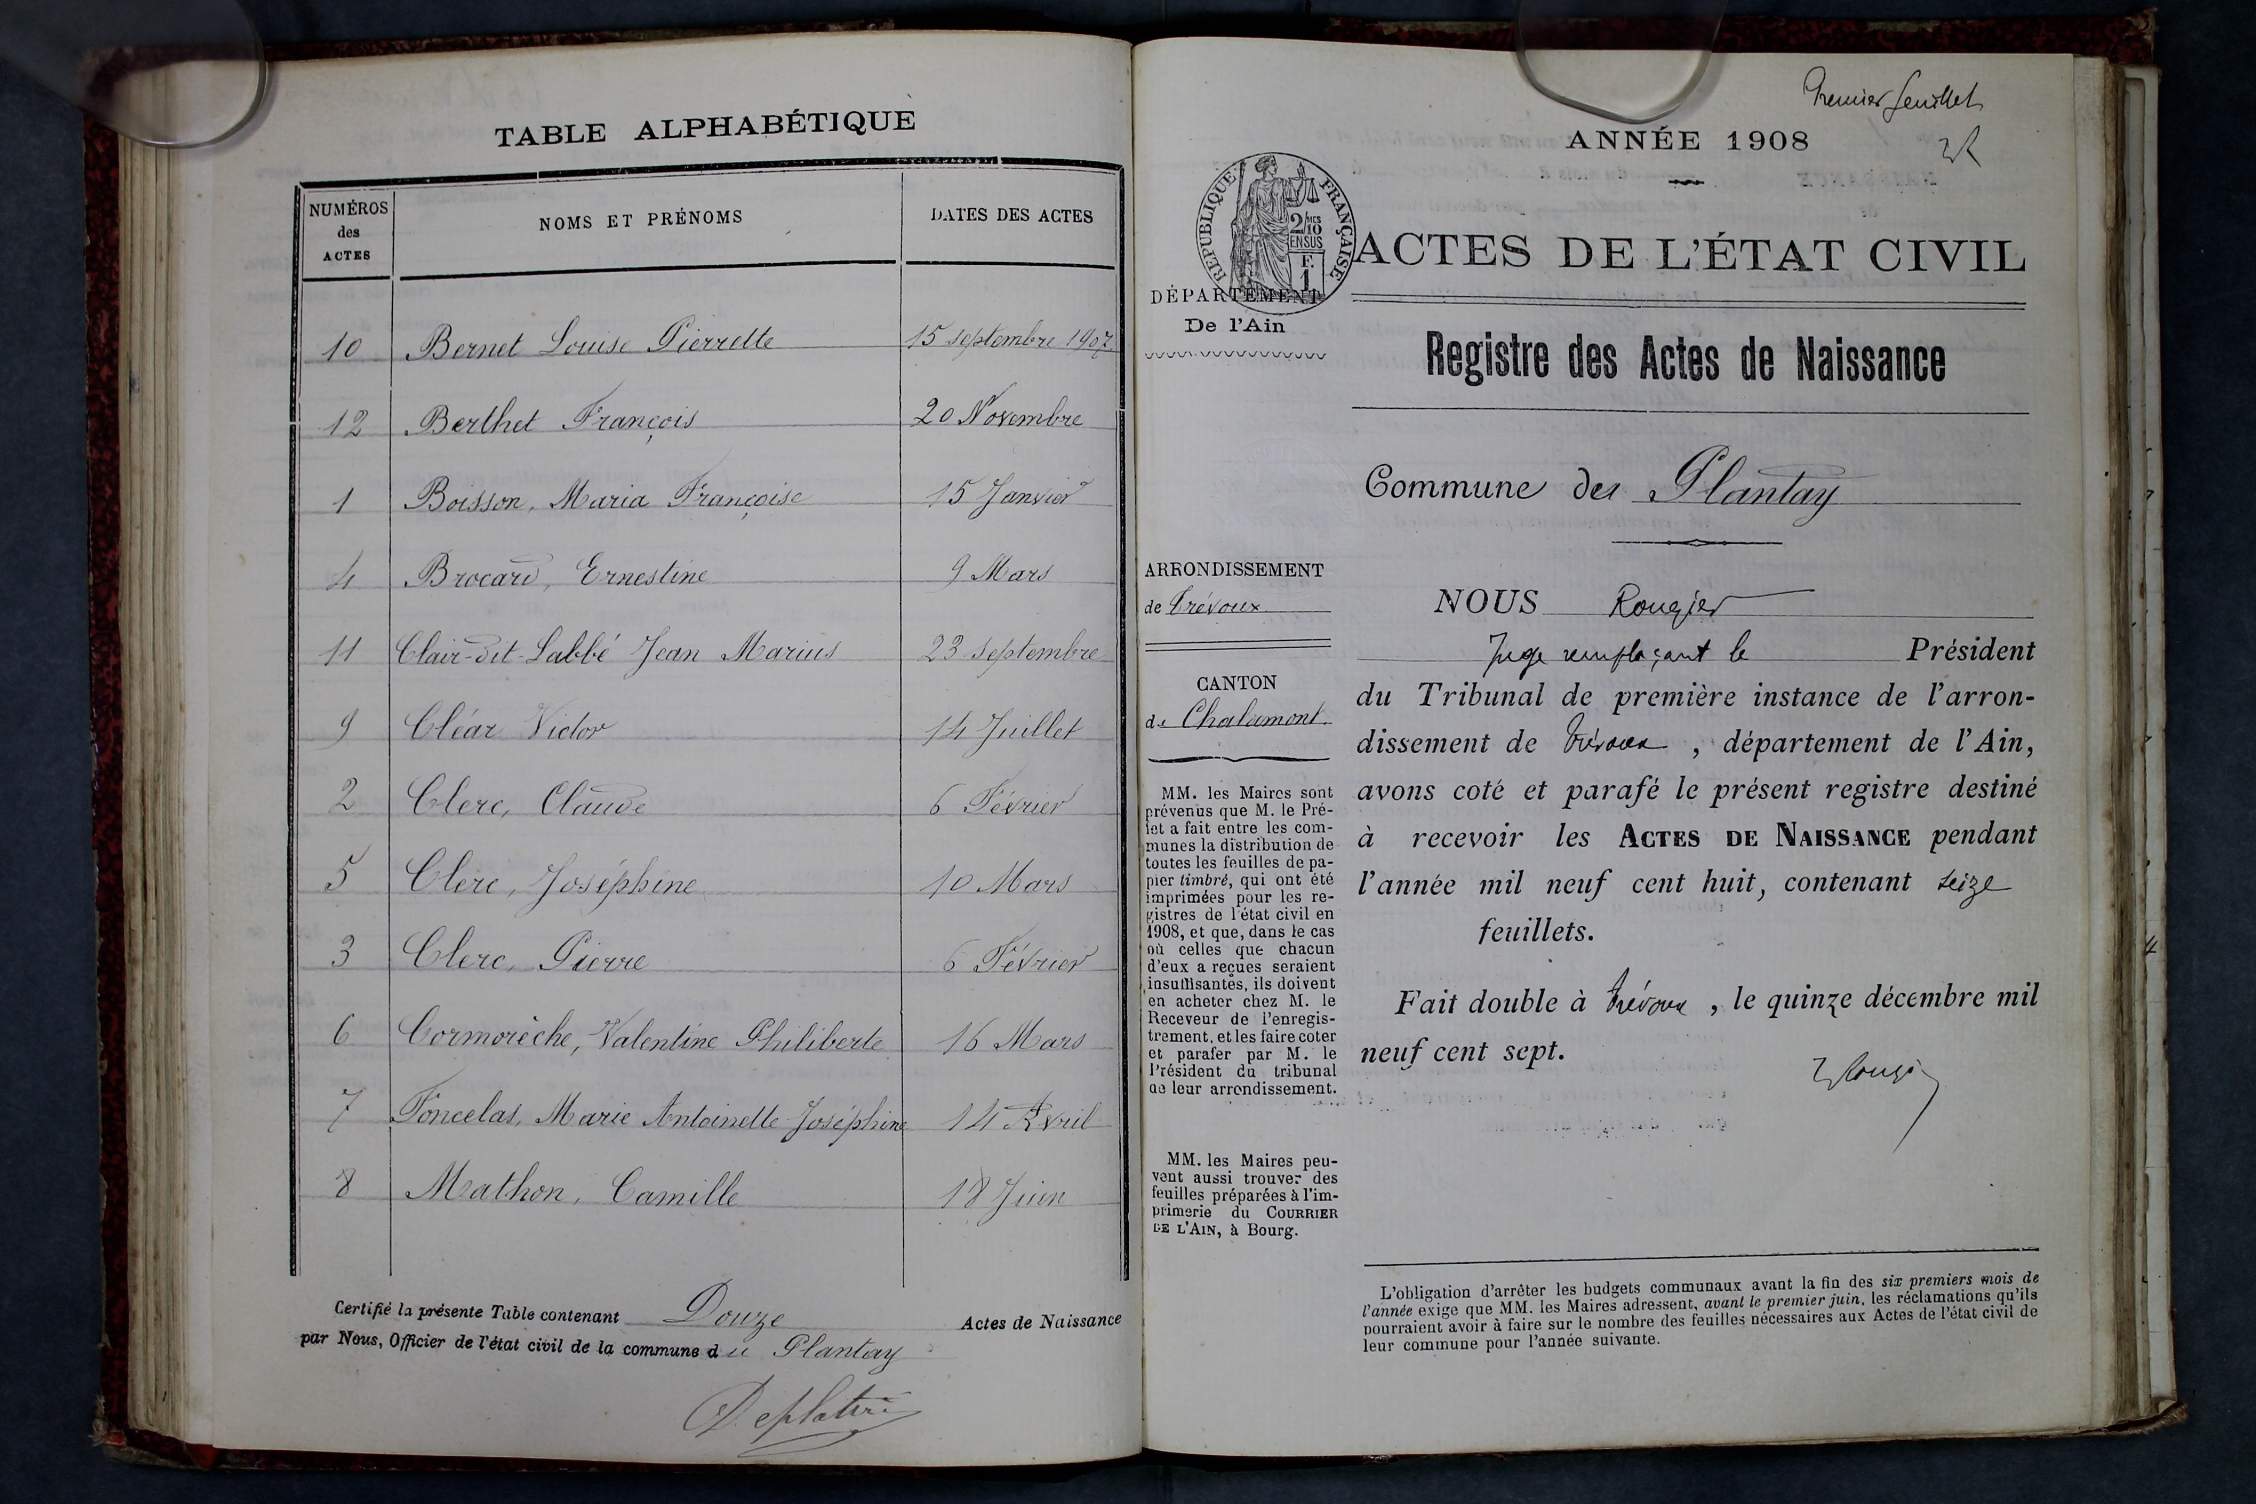 TABLE ALPHABÉTIQUE
NUMÉROS des ACTES
NOMS ET PRÉNOMS
DATES DES ACTES
10 Bernet Louise Pierrette 15 septembre 1907
12 Berthet François 20 Novembre
1 Boisson, Maria Françoise 15 Janvier
4 Brocard, Ernestine 9 Mars
11 Clair-dit-Labbé Jean Marius 23 septembre
9 Cléaz Victor 14 Juillet
2 Clerc, Claude 6 Février
5 Clerc, Joséphine 10 Mars
3 Clerc, Pierre 6 Février
6 Cormorèche, Valentine Philiberte 16 Mars
7 Foncelas, Marie Antoinette Joséphine 14 Avril
8 Mathon, Camille 18 Juin
Certifié la présente Table contenant Douze Actes de Naissance
par Nous, Officier de l'état civil de la commune du Plantay
Premier feuillet
ANNÉE 1908
RÉPUBLIQUE FRANÇAISE
2/10
MES
EN SUS
F.
1
ACTES DE L'ÉTAT CIVIL
DÉPARTEMENT
De l'Ain
Registre des Actes de Naissance
Commune de Plantay
ARRONDISSEMENT
de Trévoux
CANTON
de Chalamont.
MM. les Maires sont
prévenus que M. le Pré-
fet a fait entre les com-
munes la distribution de
toutes les feuilles de pa-
pier timbré, qui ont été
imprimées pour les re-
gistres de l'état civil en
1908, et que, dans le cas
où celles que chacun
d'eux a reçues seraient
insuffisantes, ils doivent
en acheter chez M. le
Receveur de l'enregis-
trement, et les faire coter
et parafer par M. le
Président du tribunal
de leur arrondissement.
MM. les Maires peu-
vent aussi trouver des
feuilles préparées à l'im-
primerie du COURRIER
DE L'AIN, à Bourg.
NOUS Rougier
Juge remplaçant le Président
du Tribunal de première instance de l'arron-
dissement de Trévoux, département de l'Ain,
avons coté et parafé le présent registre destiné
à recevoir les ACTES DE NAISSANCE pendant
l'année mil neuf cent huit, contenant seize
feuillets.
Fait double à Trévoux, le quinze décembre mil
neuf cent sept.
L'obligation d'arrêter les budgets communaux avant la fin des six premiers mois de
l'année exige que MM. les Maires adressent, avant le premier juin, les réclamations qu'ils
pourraient avoir à faire sur le nombre des feuilles nécessaires aux Actes de l'état civil de
leur commune pour l'année suivante.